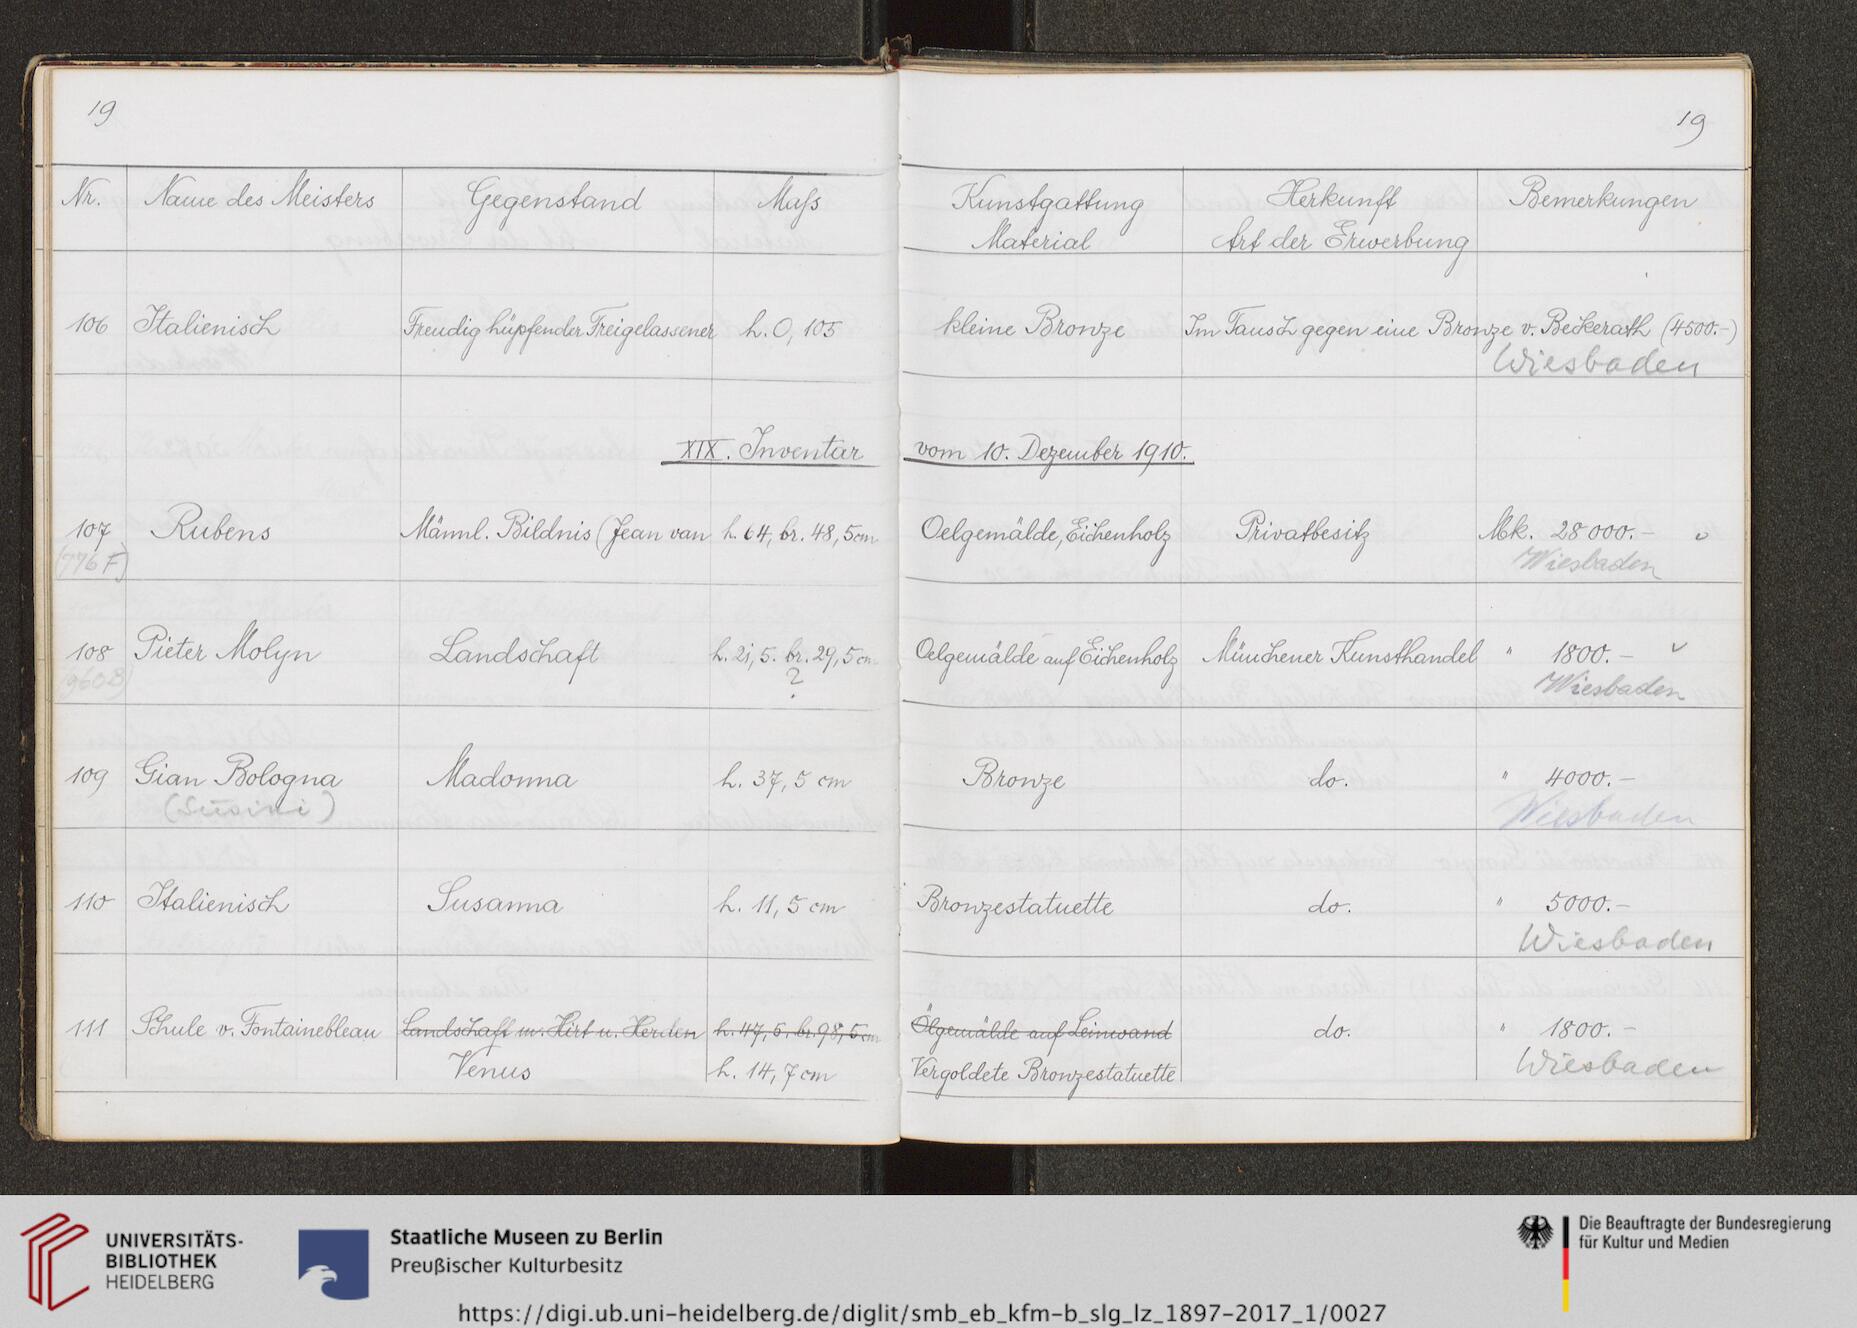 19
19
Nr. Name des Meisters Gegenstand Maſs Kunstgattung Herkunft Bemerkungen
Material Art der Erwerbung
106 Italienisch Freudig hüpfender Freigelassener h. 0,105 kleine Bronze Im Tausch gegen eine Bronze v. Beckerath (4500.-)
Wiesbaden
XIX. Inventar vom 10. Dezember 1910.
107 Rubens Männl. Bildnis (Jean van h. 64, br. 48,5cm Oelgemälde, Eichenholz Privatbesitz Mk. 28 000.-
(776 F) Wiesbaden
108 Pieter Molyn Landschaft h. 21,5. br. 29,5 cm Oelgemälde auf Eichenholz Münchener Kunsthandel " 1800.-
(960B) ? Wiesbaden
109 Gian Bologna Madonna h. 37,5 cm Bronze do. " 4000.-
(Susini) Wiesbaden
110 Italienisch Susanna h. 11,5 cm Bronzestatuette do. " 5000.-
Wiesbaden
111 Schule v. Fontainebleau Landschaft m. Hirt u. Herden h. 47,5. br. 98,5 cm Ölgemälde auf Leinwand do. " 1800.-
Venus h. 14,7 cm Vergoldete Bronzestatuette Wiesbaden
UNIVERSITÄTS-
BIBLIOTHEK
HEIDELBERG
Staatliche Museen zu Berlin
Preußischer Kulturbesitz
Die Beauftragte der Bundesregierung
für Kultur und Medien
https://digi.ub.uni-heidelberg.de/diglit/smb_eb_kfm-b_slg_lz_1897-2017_1/0027